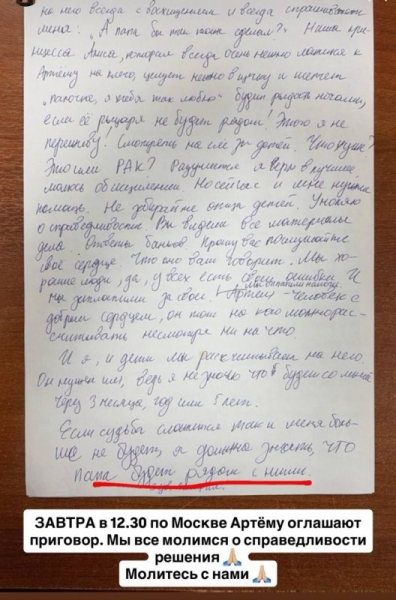 на него всегда с восхищением и всегда спрашивают
меня: "А папа бы так тоже сделал?" Наша прин-
цесса Алиса, которая всегда очень нежно ложится к
Артёму на плечо, целует нежно в щечку и шепчет
"папочка, я тебя так люблю" будет рыдать ночами,
если её рыцаря не будет рядом! Этого я не
переживу! Смотреть на слёзы детей. Что хуже?
Это или РАК? Разумеется я верю в лучшее,
молюсь об исцелении. Но сейчас и мне нужна
помощь. Не забирайте отца детей. Умоляю
о справедливости. Вы видели все материалы
дела. Ответы банков. Прошу вас послушайте
своё сердце. Что оно вам говорит. Мы хо-
рошие люди, да, у всех есть свои ошибки. И
мы заплатили за свои. Мы оплатили
Артём - человек с
добрым сердцем, он тот на кого можно рас-
считывать несмотря ни на что.
И я, и дети мы рассчитываем на него
Он нужен нам, ведь я не знаю что будет со мной
через 3 месяца, год или 5 лет.
Если судьба сложится так и меня боль-
ше не будет, я должна знать, что
папа будет рядом с ними.
ЗАВТРА в 12.30 по Москве Артёму оглашают
приговор. Мы все молимся о справедливости
решения 🙏🏼
Молитесь с нами 🙏🏼